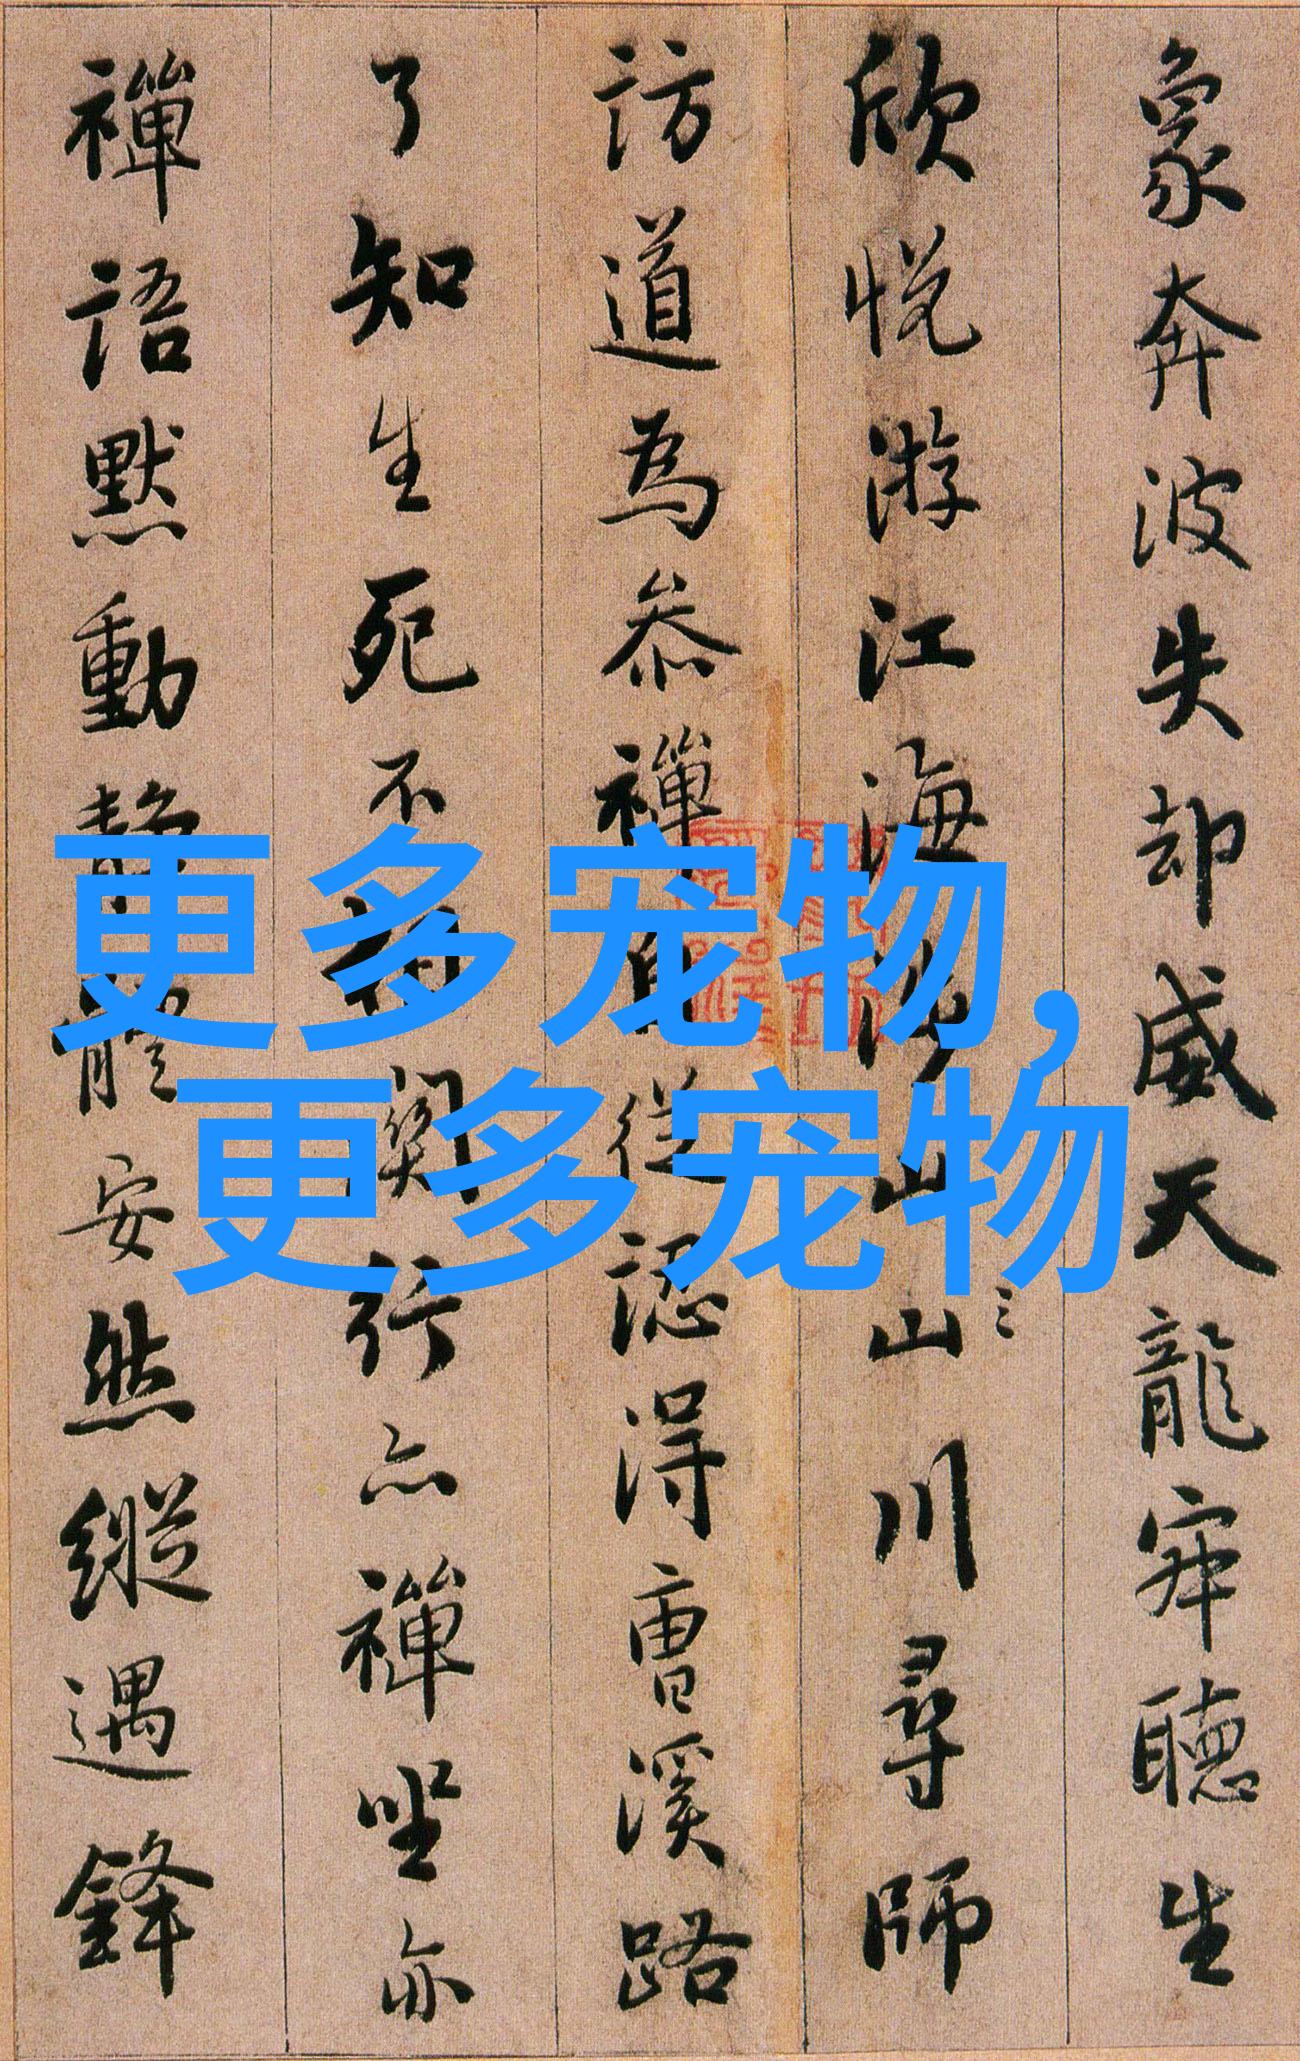 象奔波失却威天龍寂聽生
欣悦游江海涉山山川尋師
訪道為叅禪自從認得曹溪路
了知生死不相關行亦禪坐亦
禪語默動靜體安然縱遇鋒
更多宠物，
更多宠物